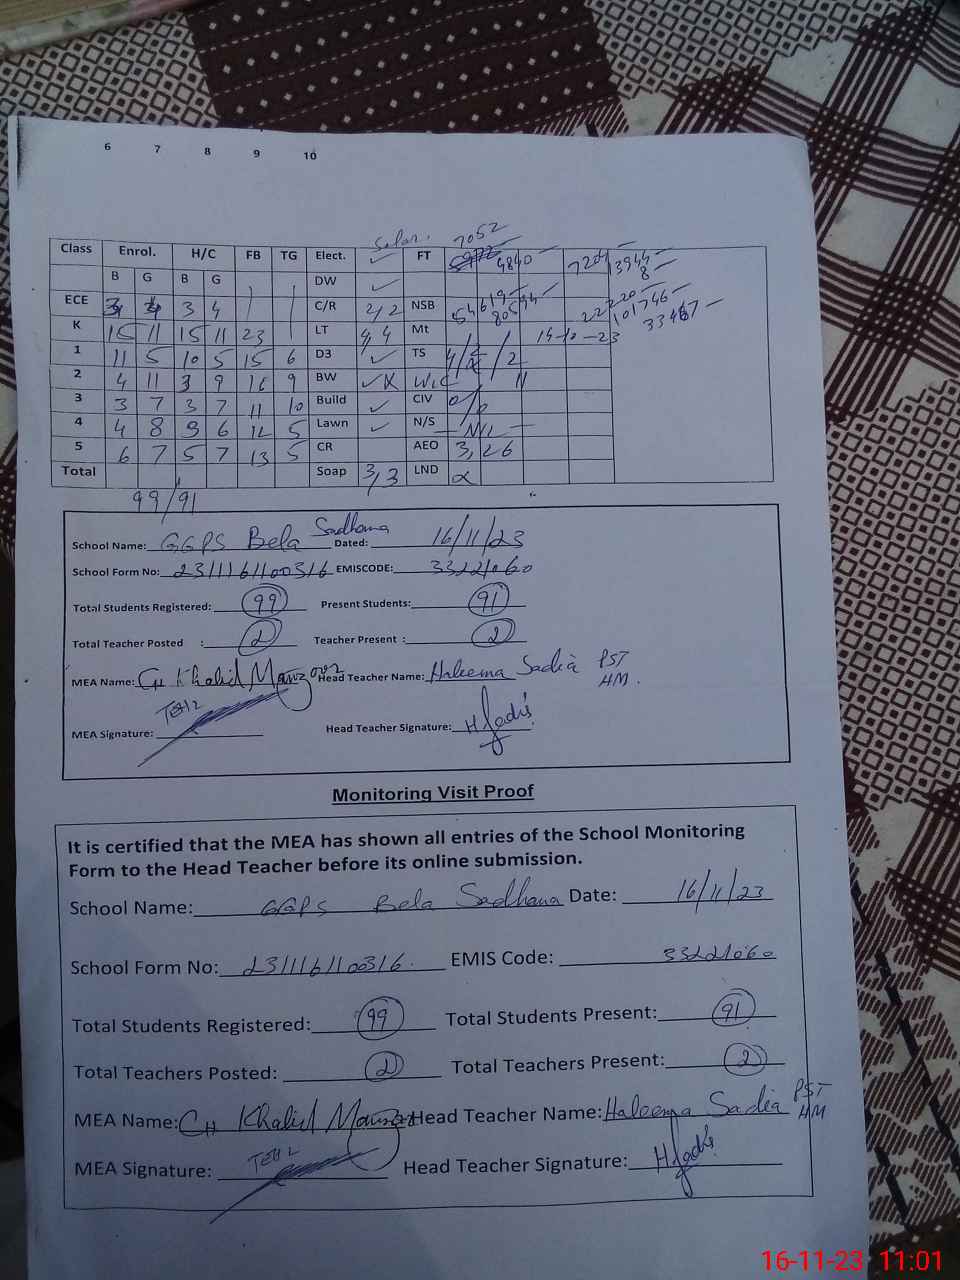 6 7 8 9 10
Solar. 7052
Class Enrol. H/C FB TG Elect. ✓ FT 4840 7201 13944
B G B G DW ✓ 8
ECE 3 4 3 4 C/R 2,2 NSB 54619 80594 22220 101746
K 15 11 15 11 23 LT 4,4 Mt 14-10-23 33467
1 11 5 10 5 15 6 D3 ✓ TS 4/2/2
2 4 11 3 9 16 9 BW ✓ X W/C 11
3 3 7 3 7 11 10 Build ✓ CIV 0/0
4 4 8 3 6 12 5 Lawn ✓ N/S Nil
5 6 7 5 7 13 5 CR AEO 3,26
Total Soap 3,3 LND
99/91
School Name: GGPS Bela Sadhana Dated: 16/11/23
School Form No: 2311161100316 EMISCODE: 33221060
Total Students Registered: 99 Present Students: 91
Total Teacher Posted : 2 Teacher Present : 2
MEA Name: CH Khalid Manzoor Head Teacher Name: Haleema Sadia PST
HM.
MEA Signature: Head Teacher Signature: H Sadia
Monitoring Visit Proof
It is certified that the MEA has shown all entries of the School Monitoring
Form to the Head Teacher before its online submission.
School Name: GGPS Bela Sadhana Date: 16/11/23
School Form No: 2311161100316. EMIS Code: 33221060
Total Students Registered: 99 Total Students Present: 91
Total Teachers Posted: 2 Total Teachers Present: 2
MEA Name: CH Khalid Manzoor Head Teacher Name: Haleema Sadia PST
HM
MEA Signature: Head Teacher Signature: H Sadia
16-11-23 11:01